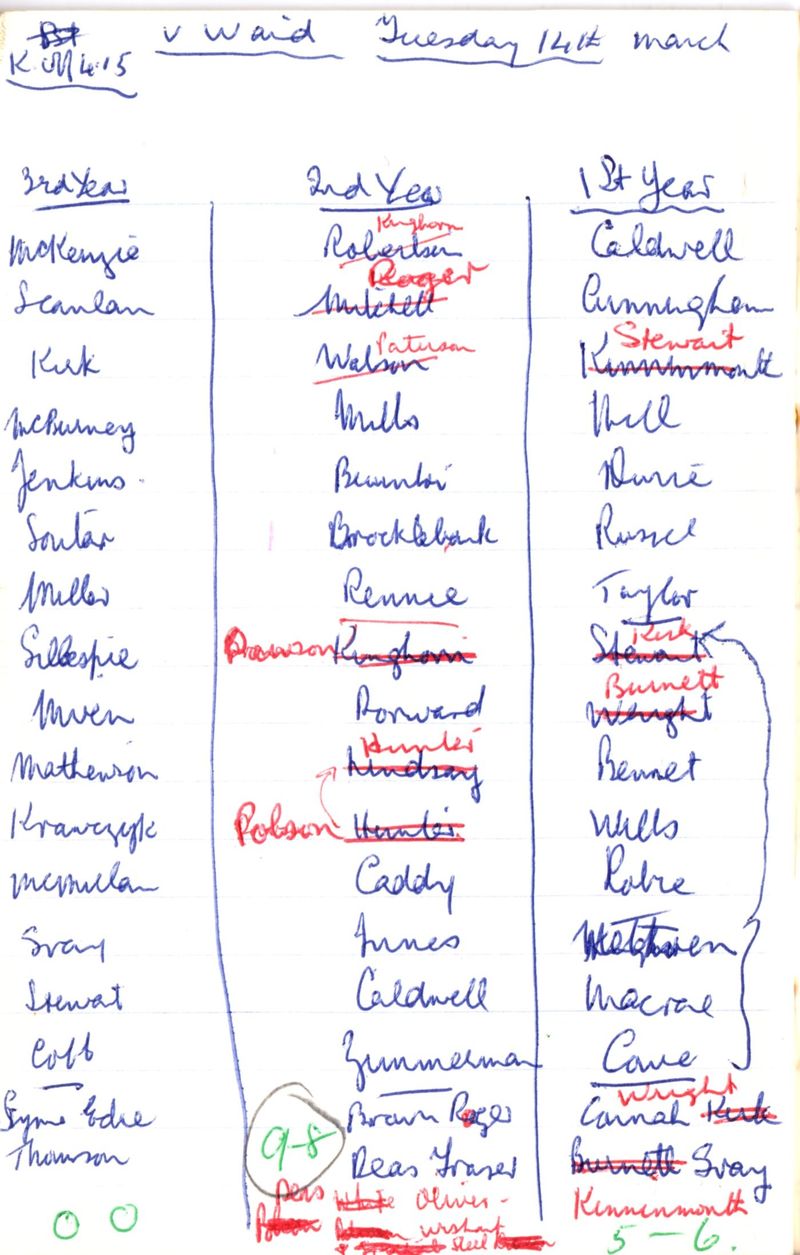 v Waid Tuesday 14th March
K.Off 4.15
3rd Year 2nd Year 1st Year
Kinghorn
McKenzie Robertson Caldwell
Roger
Scanlan Mitchell Cunningham
Paterson Stewart
Kirk Watson Kinninmonth
McBurney Mills Hill
Jenkins Durie
Soutar Brocklebank Russel
Miller Rennie Taylor
Kirk
Gillespie Dawson Kinghorn Stewart
Burnett
Dorward Wright
Hunter
Mathewson Lindsay Bennet
Krawczyk Robson Hunter Wells
McMillan Caddy
Gray Innes Methven
Stewart Caldwell Macrae
Cobb Zimmerman Cave
Wright
Syme Edie Brown Roger Cannah Kirk
Thomson 9-8 Deas Fraser Burnett Gray
Deas White Oliver Kinnenmonth
Wishart
0 0 Steel 5-6.